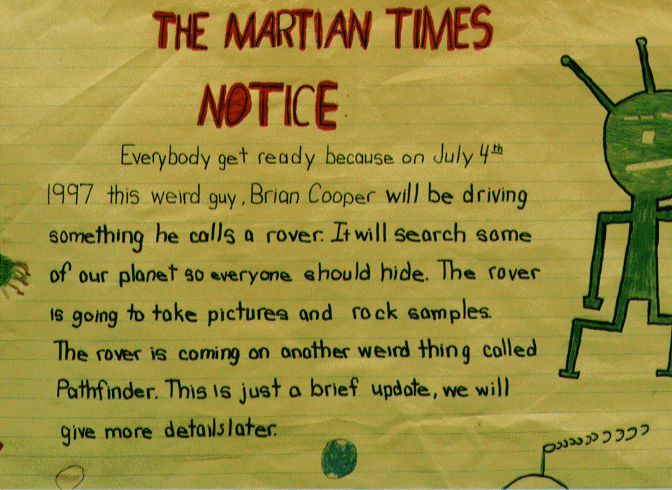 THE MARTIAN TIMES
NOTICE
Everybody get ready because on July 4th
1997 this weird guy, Brian Cooper will be driving
something he calls a rover. It will search some
of our planet so everyone should hide. The rover
is going to take pictures and rock samples.
The rover is coming on another weird thing called
Pathfinder. This is just a brief update, we will
give more details later.